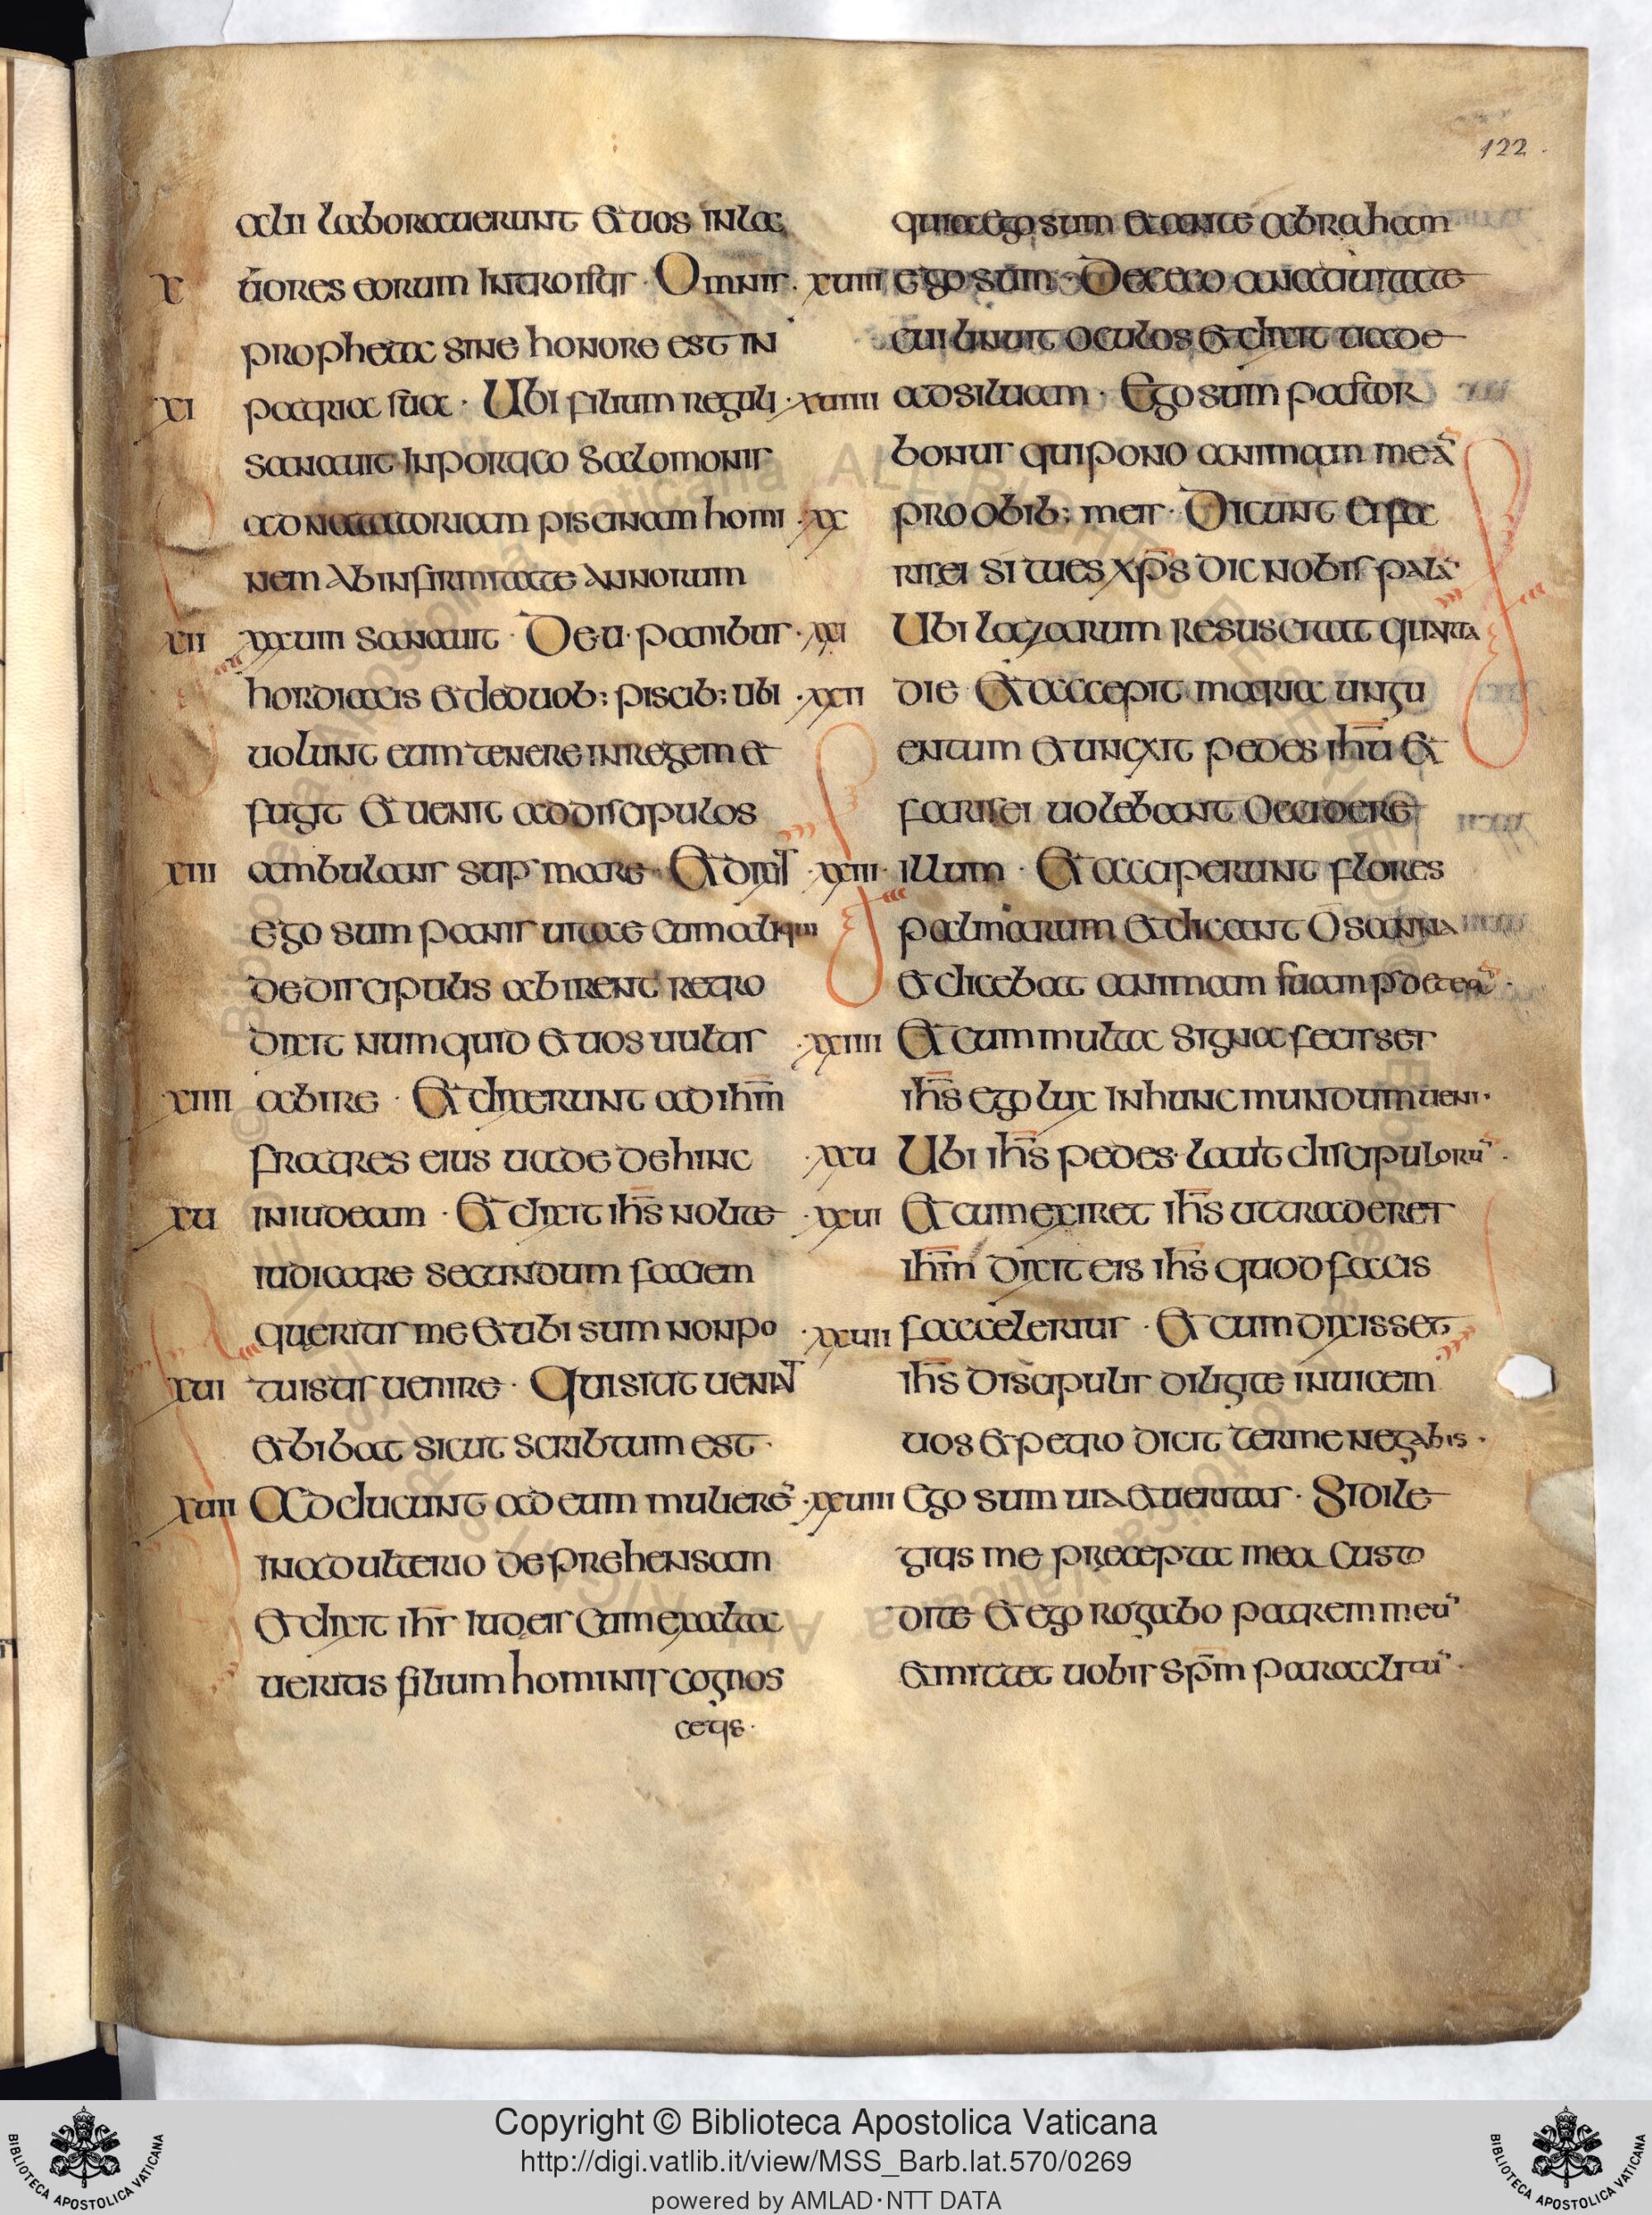 122
alii laborauerunt et uos in la
X bores eorum introistis · Omnis
propheta sine honore est in
XI patria sua · Ubi filium reguli
sanauit in portico Salomonis
ad natatoriam piscinam homi
nem ab infirmitate annorum
XII xxxuiii sanauit · De u · panibus
hordiacis et de duob; piscib; ubi
uolunt eum tenere in regem et
fugit et uenit ad discipulos
XIII ambulans sup mare · Et dixit
ego sum panis uitae cum aliqui
de discipulis abirent retro
dixit numquid et uos uultis
XIIII abire · Et dixerunt ad ihm
fratres eius uade de hinc
XU in iudeam · Et dixit ihs nolite
iudicare secundum faciem
queritis me et ubi sum non po
XUI tuistis uenire · Qui sitit ueniat
et bibat sicut scribtum est ·
XUII Adducunt ad eum mulierē
in adulterio deprehensam
et dixit ihs iudeis cum exalta
ueritis filium hominis cognos
cetis ·
quia ego sum et ante abraham
· XUIII ego sum · De caeco a natiuitate
cui liniuit oculos et dixit uade
· XUIIII ad siluam · Ego sum pastor
bonus qui pono animam meā
· XX pro obib; meis · Dicunt ei fa
risei si tu es xps dic nobis palā
· XXI Ubi lazarum resuscitat quarta
· XXII die Et accepit maria ungu
entum et uncxit pedes ihu et
farisei uolebant occidere
· XXIII · illum · Et acciperunt flores
palmarum et dicant Osanna
et dicebat animam suam
· XXIIII Et cum multa signa fecisset
ihs ego lux in hunc mundum ueni ·
· XXU Ubi ihs pedes lauit discipulorū ·
· XXUI Et cum exiret ihs ut traderet
ihm dixit eis ihs quod facis
· XXUII fac celerius · Et cum dixisset
ihs discipulis diligite inuicem
uos et petro dicit ter me negabis ·
· XXUIII Ego sum uia et ueritas · Si dile
gitis me precepta mea custo
dite et ego rogabo patrem meū
et mittet uobis spm paraclitū ·
Copyright © Biblioteca Apostolica Vaticana
http://digi.vatlib.it/view/MSS_Barb.lat.570/0269
powered by AMLAD·NTT DATA
BIBLIOTECA APOSTOLICA VATICANA
BIBLIOTECA APOSTOLICA VATICANA